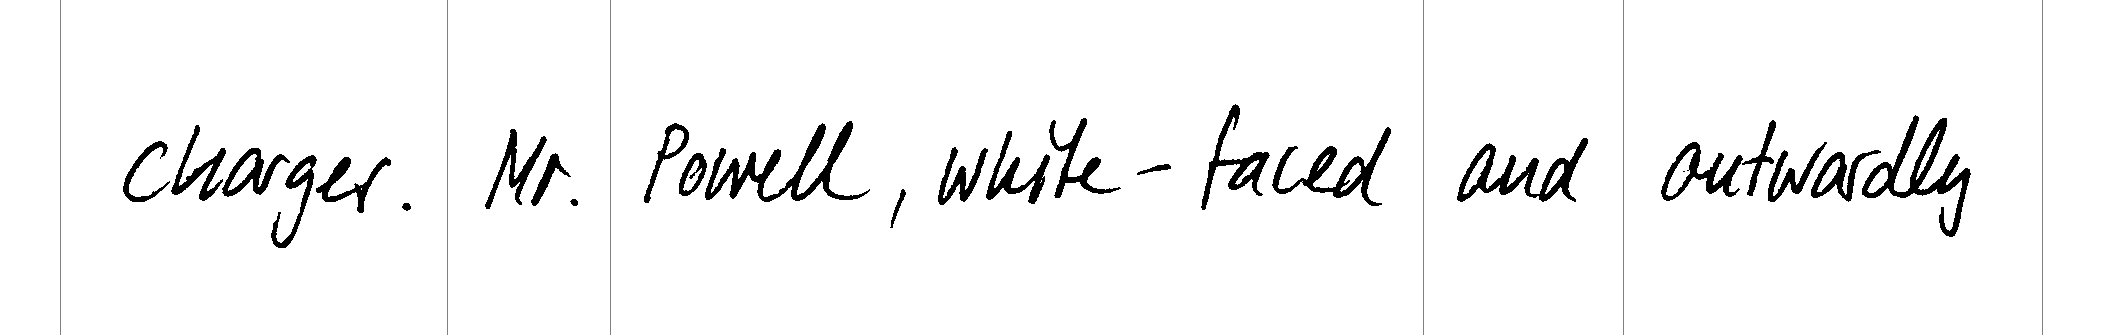 charger. Mr. Powell, white-faced and outwardly